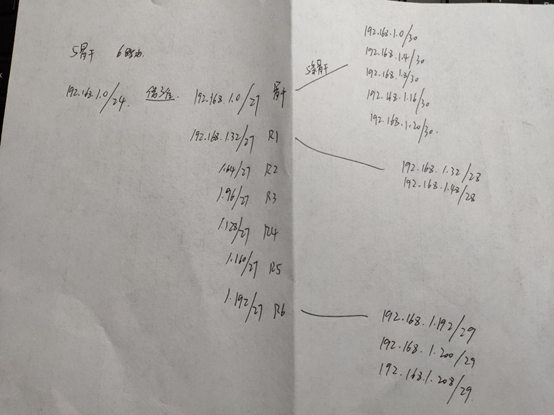 5骨干 6路由
192.168.1.0/24 借3位 192.168.1.0/27 骨干
192.168.1.32/27 R1
1.64/27 R2
1.96/27 R3
1.128/27 R4
1.160/27 R5
1.192/27 R6
5骨干
192.168.1.0/30
192.168.1.4/30
192.168.1.8/30
192.168.1.16/30
192.168.1.20/30
192.168.1.32/28
192.168.1.48/28
192.168.1.192/29
192.168.1.200/29
192.168.1.208/29